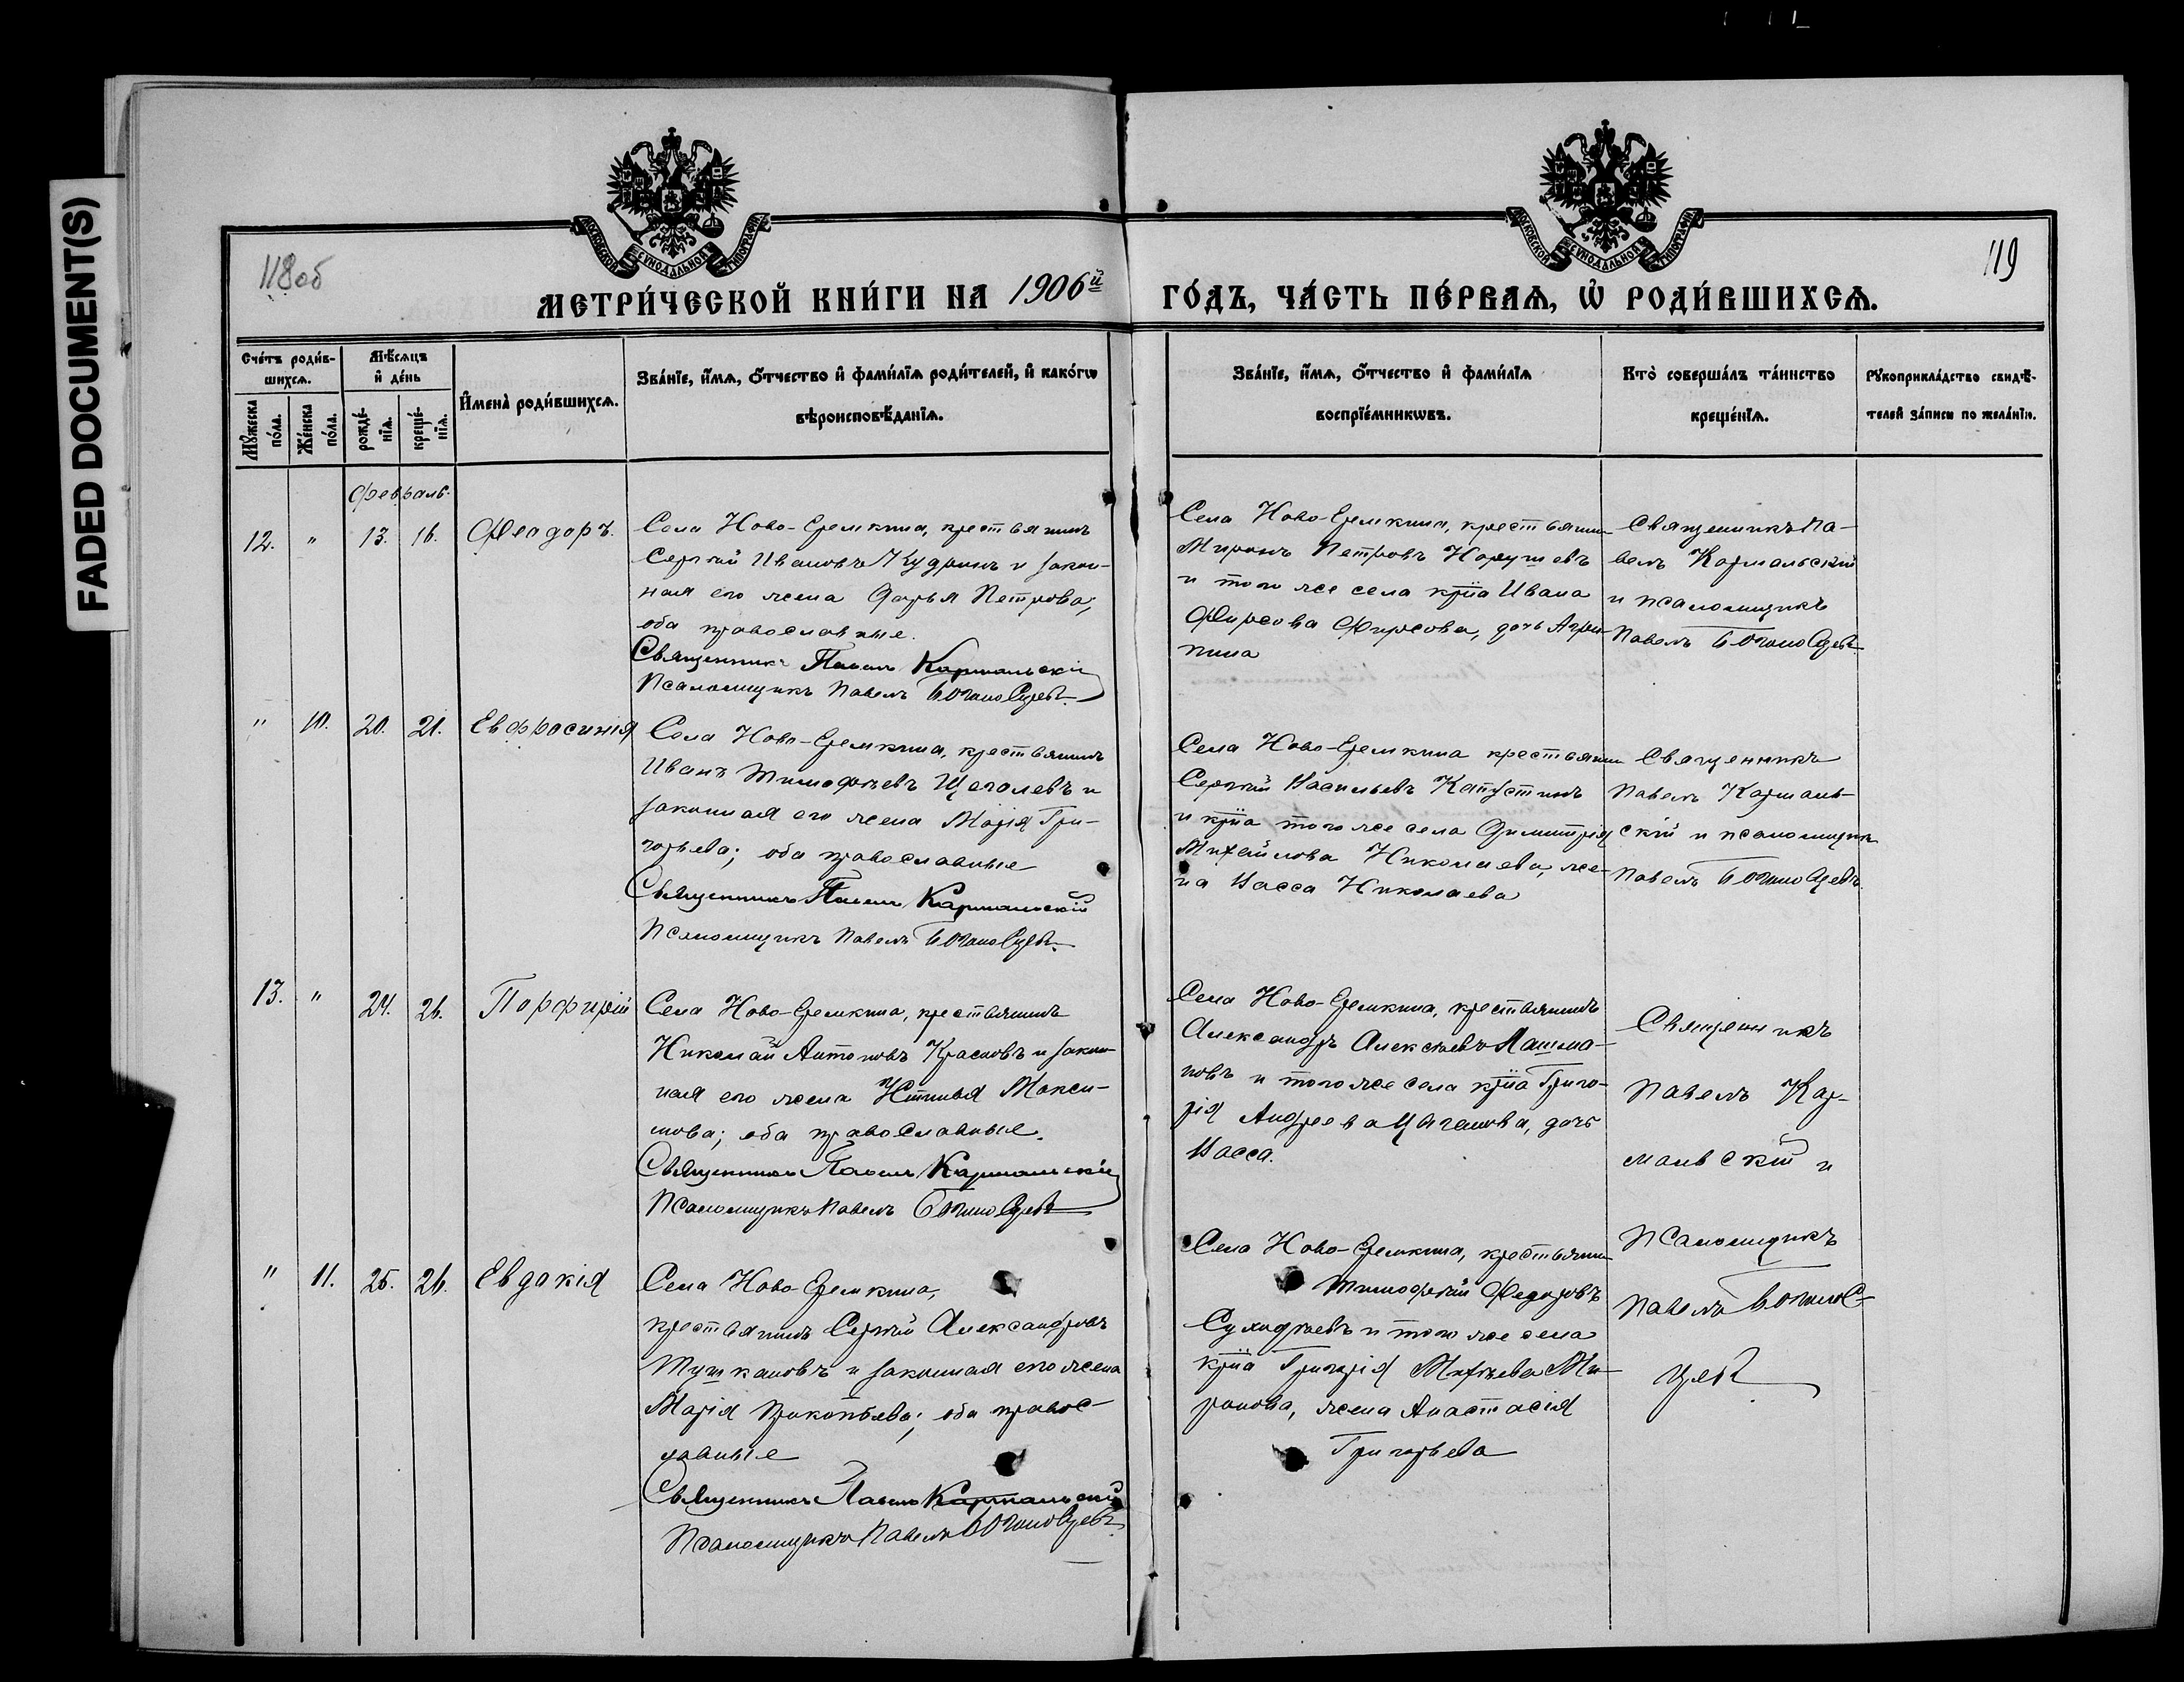 FADED DOCUMENT(S)
118об
119
МОСКОВСКОЙ СѴНОДАЛЬНОЙ ТИПОГРАФІИ
МОСКОВСКОЙ СѴНОДАЛЬНОЙ ТИПОГРАФІИ
МЕТРИ́ЧЕСКОЙ КНИ́ГИ НА 1906й ГО́ДЪ, ЧА́СТЬ ПЕ́РВАѦ, Ѡ҆ РОДИ́ВШИХСѦ.
Сче́тъ роди́в-
шихсѧ.
Мѹ́жеска по́ла.
Же́нска по́ла.
Мѣ́сѧцъ
и҆ де́нь
рожде́-
нїѧ.
креще́-
нїѧ.
И҆мена̀ роди́вшихсѧ.
Зва́нїе, и҆́мѧ, ѻ҆́тчество и҆ фами́лїѧ роди́телей, и҆ како́гѡ
вѣроисповѣ́данїѧ.
Зва́нїе, и҆́мѧ, ѻ҆́тчество и҆ фами́лїѧ
воспрїе́мникѡвъ.
Кто̀ соверша́лъ та́инство
креще́нїѧ.
Рѹкоприкла́дство свидѣ́-
телей за́писи по жела́нїю.
Февраль.
12. " 13. 16. Феодоръ.
Села Ново-Еремкина, крестьянинъ
Сергѣй Ивановъ Кудринъ и закон-
ная его жена Дарья Петрова;
оба православные.
Священникъ Павелъ Кармальскій
Псаломщикъ Павелъ
Села Ново-Еремкина, крестьянин
Миронъ Петровъ
и того же села крна Ивана
Фирсова Фирсова, дочь Агри-
пина
Священникъ Па-
велъ Кармальскій
и псаломщикъ
Павелъ
" 10. 20. 21. Евфросинія
Села Ново-Еремкина, крестьянинъ
Иванъ Тимофѣевъ Щеголевъ и
законная его жена Марія Гри-
горьева; оба православные
Священникъ Павелъ Кармальскій
Псаломщикъ Павелъ
Села Ново-Еремкина крестьянин
Сергѣй Васильевъ Капустинъ
и крна того же села Димитрія
Михайлова Николаева, же-
на Васса Николаева
Священникъ
Павелъ Кармаль-
скій и псаломщик
Павелъ
13. " 24. 26. Порфирій
Села Ново-Еремкина, крестьянинъ
Николай Антоновъ Красновъ и закон-
ная его жена Устинья Макси-
мова; оба православные.
Священникъ Павелъ Кармальскій
Псаломщикъ Павелъ
Села Ново-Еремкина, крестьянинъ
Александръ Алексѣевъ Лашма-
новъ и того же села крна Григо-
рія Андреева Цыганова, дочь
Васса.
Священникъ
Павелъ Кар-
мальскій и
псаломщикъ
Павелъ
" 11. 25. 26. Евдокія
Села Ново-Еремкина,
крестьянинъ Сергѣй Александровъ
Тушкановъ и законная его жена
Марія Прокопьева; оба правос-
лавные
Священникъ Павелъ Кармальскій
Псаломщикъ Павелъ
Села Ново-Еремкина, крестьянин
Тимофѣй Федоровъ
и того же села
крна Григорія Матвѣева Ми-
ронова, жена Анастасія
Григорьева